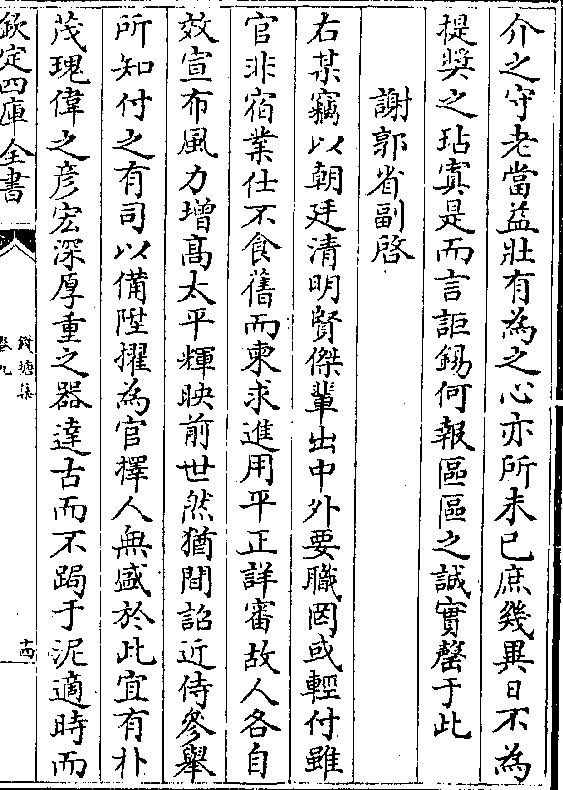 介之守老當益壯有為之心亦所未已庶幾異日不為
提奬之玷寘是而言詎錫何報區區之誠實罄于此
謝郭省副啓
右某竊以朝廷清明賢傑輩出中外要職罔或輕付雖
官非宿業仕不食舊而柬求進用平正詳審故人各自
效宣布風力增髙太平輝映前世然猶間詔近侍參舉
所知付之有司以備陞擢為官擇人無盛於此宜有朴
茂瑰偉之彦宏深厚重之器達古而不跼于泥適時而
欽定四庫全書
錢塘集
卷九
十四